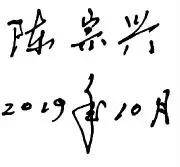 陈宗兴
2019年10月